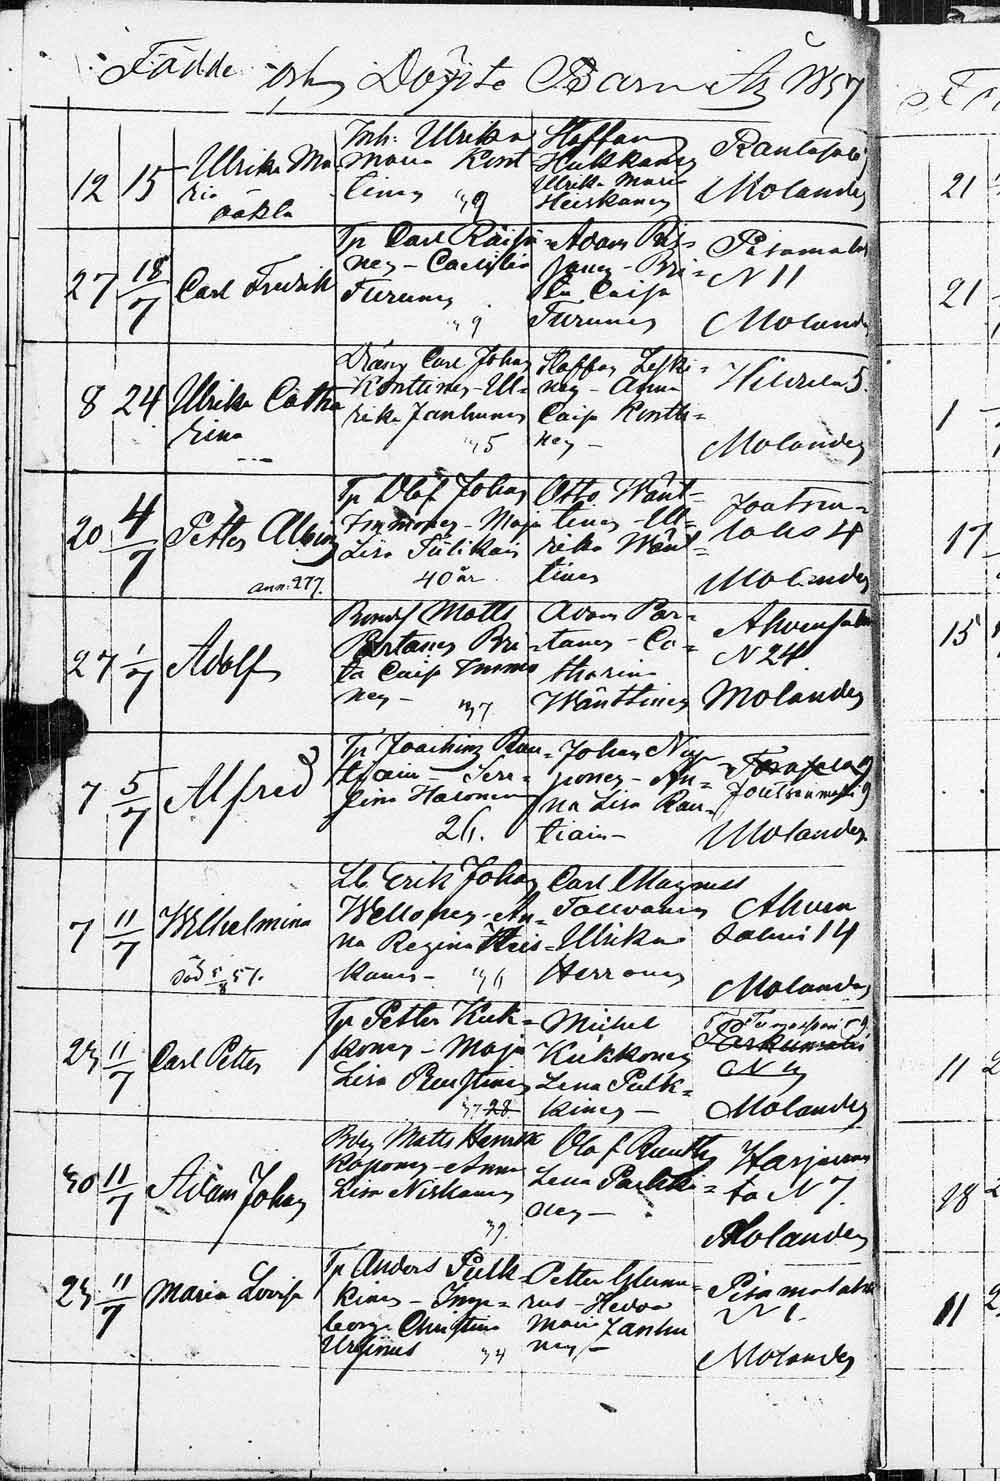 Födde och Döpte Barn År 1857
12 15 Ulrika Ma
ria
oäkta
Inh: Ulrika
Maria Kont
tinen
39
Staffan
Hukkanen
Ulrika Maria
Heiskanen
Rantasalmi
Molander
27 18/7 Carl Fredrik
Tp Carl Räisä
nen – Carolina
Turunen
39
Adam
Bri-
ta Caisa
Turunen
N 11
Molander
8 24 Ulrika Catha
rina
Dräng Carl Johan
Konttinen – Ul-
rika Janhunen
35
Staffan Leski-
nen – Anna
Caisa Kontti-
nen –
5.
Molander
20 4/7 Petter Albin
ann. 277.
Tp Olof Johan
Immonen – Maja
Lisa Tiilikain
40 år
Otto Wänt-
tinen – Ul-
rika Wänt-
tinen
Joutsen-
lahs 4
Molander
27 1/7 Adolf
Bondes Matts
Partanen Bri-
ta Caisa Immo
nen –
37
Adam Par-
tanen – Ca-
tharina
Wänttinen
Ahvensalmi
N 24
Molander
7 5/7 Alfred
Tp Joachim Rau-
tiain – Sere-
fina Halonen
26.
Johan Nup
ponen – An-
na Lisa Rau-
tiain –
Molander
7 11/7 Wilhelmina
död 5/8 57.
Lb Erik Johan
Wellonen – An-
na Regina Heis-
kanen –
36
Carl Magnus
Tolvanen
Ulrika
Herranen
Ahven
salmi 14
Molander
23 11/7 Carl Petter
Tp Petter Kuk-
konen – Maja
Lisa
37 28
Michel
Kukkonen
Lena Pulk-
kinen –
Molander
30 11/7 Adam Johan
Bdn Matts Henrik
Kaponen – Anna
Lisa Niskanen
39.
Olof
Lena Parkki-
nen –
Harjuran
ta N 7.
Molander
23 11/7 Maria Lovisa
Tp Anders Pulk-
kinen – Inge-
borg Christina
Ursinus
34
Petter Glume-
rus – Hedda
Maria Janhu
nen –
N 1.
Molander
21
21
1
17
15
11 2
18 2
11 2